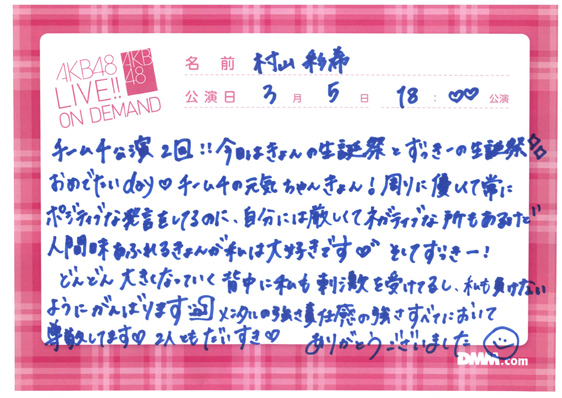 AKB48
LIVE!!
ON DEMAND
AKB
48
名前 村山彩希
公演日 3月5日 18:♡♡公演
チーム4公演2回!!今日はきょんの生誕祭とずっきーの生誕祭
おめでたいday♡チーム4の元気ちゃんきょん!周りに優しくて常に
ポジティブな発言をしてるのに、自分には厳しくてネガティブな所もあるけど
人間味あふれるきょんが私は大好きです♡そしてずっきー!
どんどん大きくなっていく背中に私も刺激を受けてるし、私も負けない
ようにがんばります メンタルの強さ責任感の強さすべてにおいて
尊敬してます♡2人ともだいすき♡ ありがとうございました
DMM.com